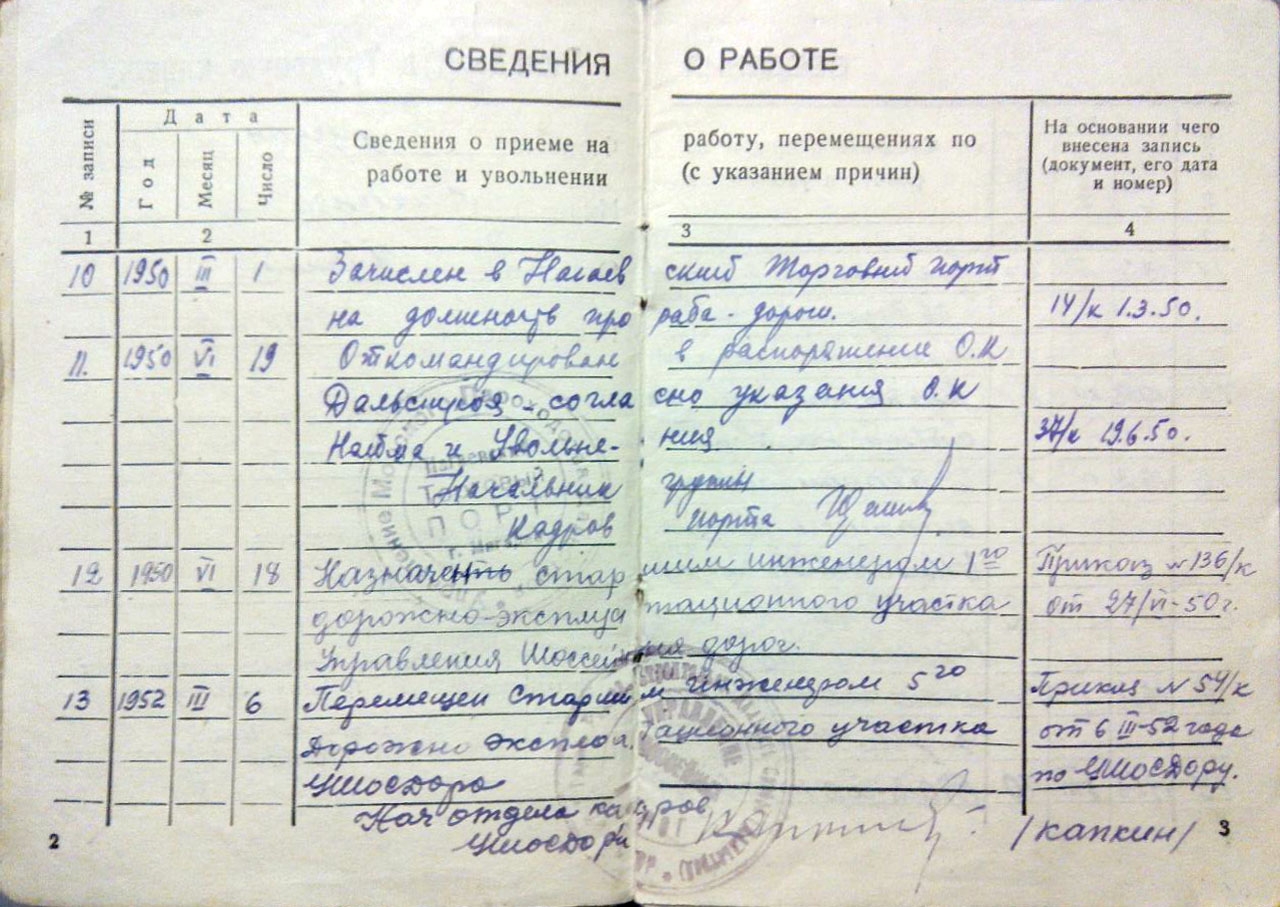 СВЕДЕНИЯ О РАБОТЕ
№ записи
Дата
Год
Месяц
Число
Сведения о приеме на работу, перемещениях по
работе и увольнении (с указанием причин)
На основании чего
внесена запись
(документ, его дата
и номер)
1 2 3 4
10 1950 III 1 Зачислен в Нагаевский Торговый порт
на должность прораба - дороги. 14/к 1.3.50.
11. 1950 VI 19 Откомандирован в распоряжение О.К
Дальстроя - согласно указания О.К
Найма и Увольнения 37/к 19.6.50.
Начальник группы
Кадров порта
12 1950 VI 18 Назначить старшим инженером 1го Приказ №136/к
дорожно-эксплуатационного участка от 27/VI-50г.
Управления Шоссейных дорог.
13 1952 III 6 Перемещен Старшим инженером 5го Приказ № 54/к
Дорожно эксплоатационного участка от 6 III-52 года
Ушосдора по Ушосдору.
Нач отдела кадров
Ушосдора /Капкин/
ТОРГОВЫЙ
ПОРТ
УПРАВЛЕНИЕ
2 3